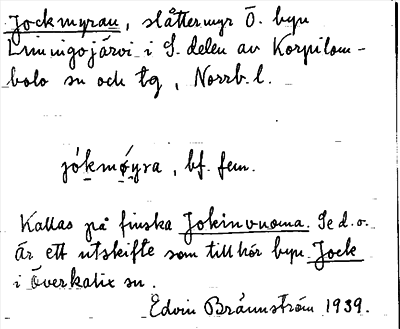 Jockmyran, slåttermyr Ö. byn
Limingojärvi i S. delen av Korpilom-
bolo sn och tg, Norrb. l.
jókmǿyra, bf. fem.
Kallas på finska Jokinvuoma. Se d. o.
är ett utskifte som tillhör byn Jock
i Överkalix sn.
Edvin Brännström 1939.